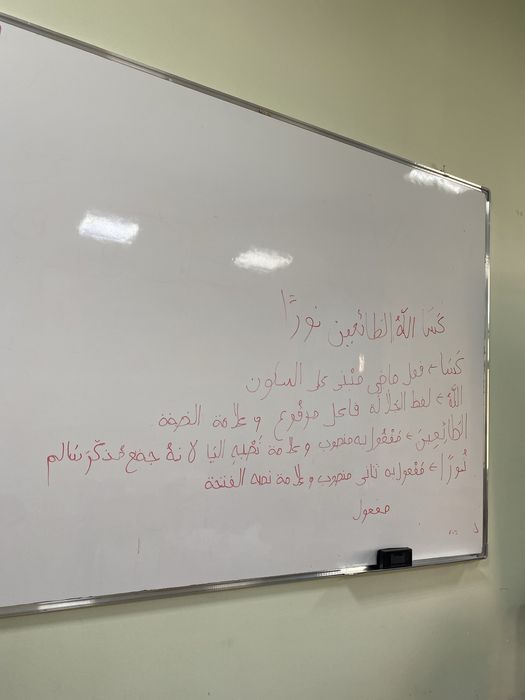 كَسَا اللّهُ الطائعين نورًا
كَسَا ← فعل ماضي مبْني على السكون
اللّهُ ← لفظ الجلاله فاعل مرفوع وعلامة الضمة
الطَائعِينَ ← مَفْعُول به منصوب وعلامة نَصْبهِ اليا لانهُ جمع مذكّر سَالم
نُورًا ← مَفْعول به ثاني منصوب وعلامة نصبه الفتحة
مفعول